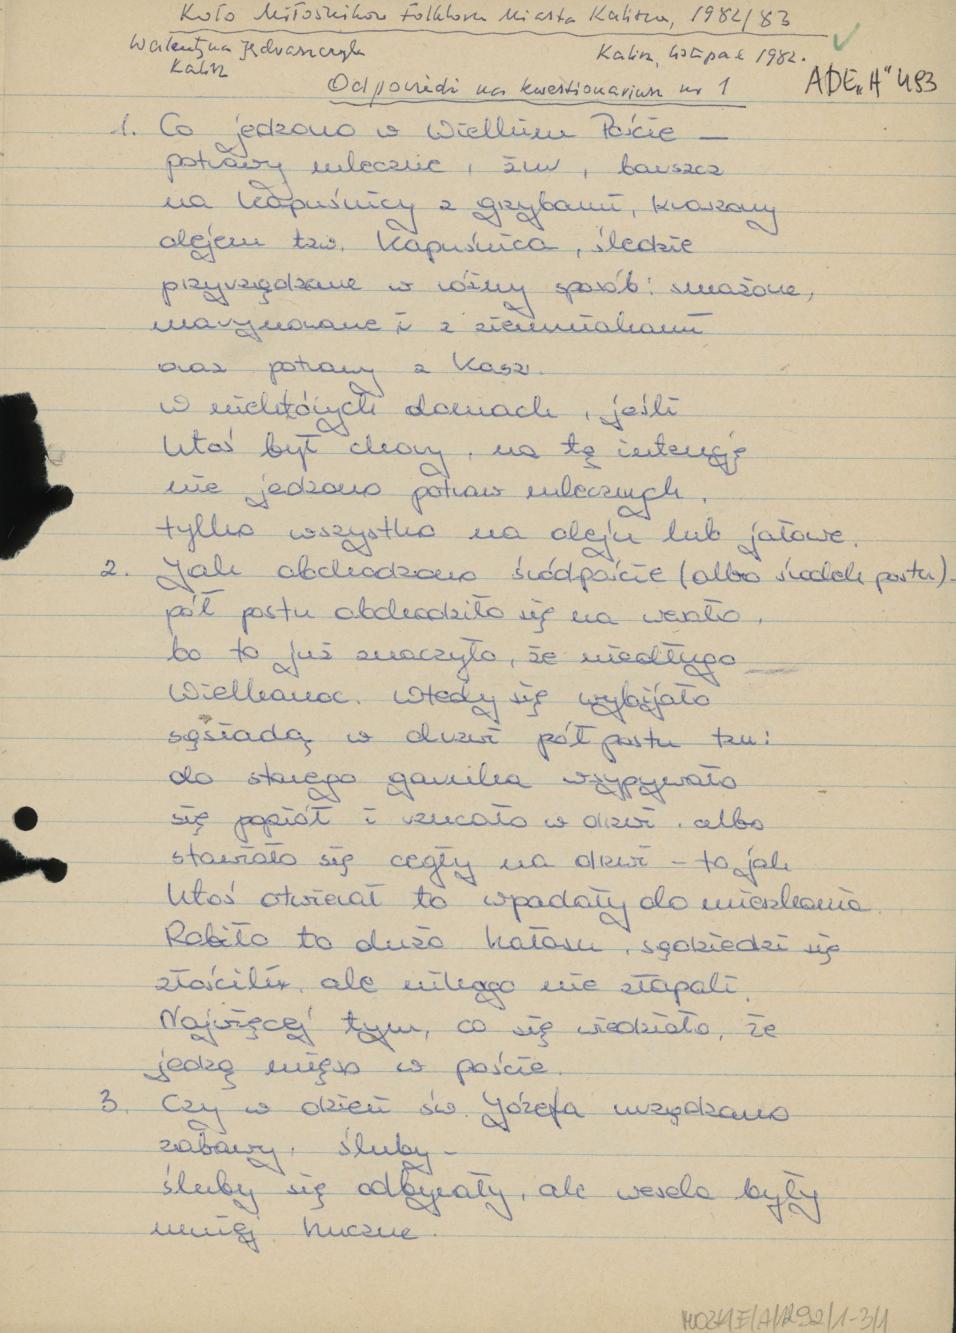 Koło Miłośników Folkloru Miasta Kalisza, 1982/83
Walentyna Jędraszczyk
Kalisz
Kalisz, listopad 1982.
ADE „H" 493
Odpowiedzi na kwestionariusz nr 1
1. Co jedzono w Wielkim Poście –
potrawy mleczne, żur, barszcz
na kapuśnicy z grzybami, kraszony
olejem tzw. kapuśnica, śledzie
przyrządzane w różny sposób: smażone,
marynowane i z ziemniakami
oraz potrawy z kasz.
W niektórych domach, jeśli
ktoś był chory, na tę intencję
nie jedzono potraw mlecznych,
tylko wszystko na oleju lub jałowe.
2. Jak obchodzono śródpoście (albo środek postu) –
pół postu obchodziło się na wesoło,
bo to już znaczyło, że niedługo
Wielkanoc. Wtedy się wybijało
sąsiadą w drzwi półpostu tzn:
do starego garnka wsypywało
się popiół i rzucało w drzwi, albo
stawiało się cegły na drzwi – to jak
ktoś otwierał to wpadały do mieszkania.
Robiło to dużo hałasu, sąsiedzi się
złościli, ale nikogo nie złapali.
Najwięcej tym, co się wiedziało, że
jedzą mięso w poście.
3. Czy w dzień św. Józefa urządzano
zabawy, śluby –
śluby się odbywały, ale wesela były
mniej huczne.